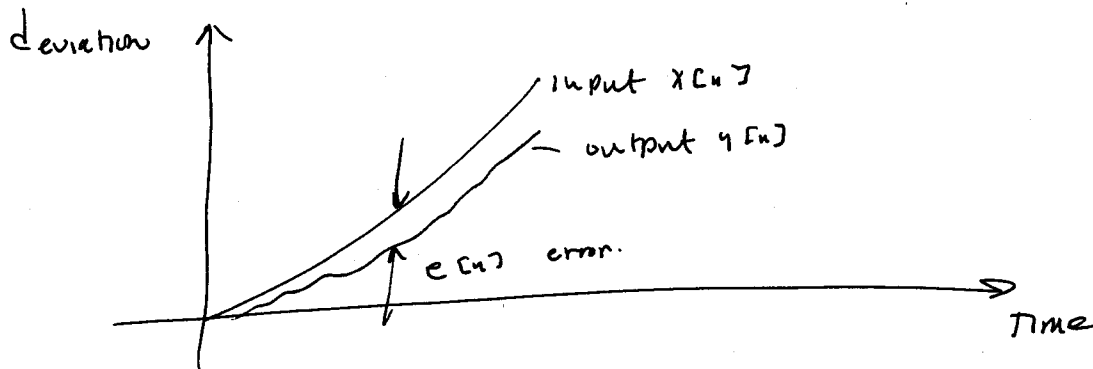 deviation
input x[n]
output y[n]
e[n] error.
Time